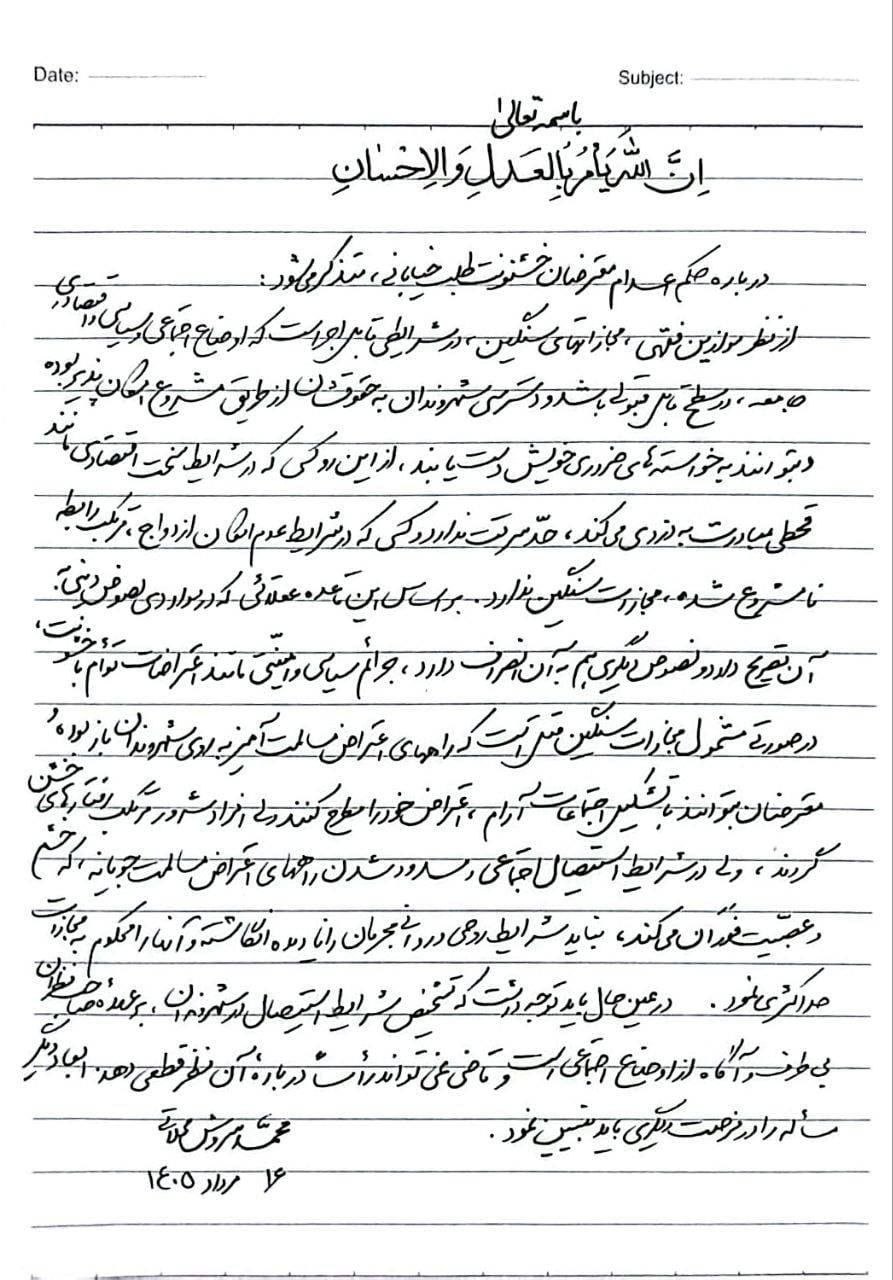 Date:
Subject:
باسمه تعالی
اِنَّ اللهَ یَأمُرُ بِالعَدلِ وَالاِحْسٰانِ
درباره حکم اعدام معترضان خشونت طلب خیابانی، متذکر می‌شود:
از نظر موازین فقهی، مجازاتهای سنگین، در شرایطی قابل اجراست که اوضاع اجتماعی و سیاسی و اقتصادی
جامعه، در سطح قابل قبولی باشد و دسترسی شهروندان به حقوقشان از طریق مشروع امکان پذیر بوده
و بتوانند به خواسته‌های ضروری خویش دست یابند، از این رو کسی که در شرایط سخت اقتصادی مانند
قحطی مبادرت به دزدی می‌کند، حدّ سرقت ندارد و کسی که در شرایط عدم امکان ازدواج، مرتکب رابطه
نامشروع شده، مجازات سنگین ندارد. بر اساس این قاعده عقلائی که در مواردی نصوص دینی به
آن تصریح دارد و نصوص دیگری هم به آن انصراف دارد، جرائم سیاسی و امنیّتی مانند اعتراضات توأم با خشونت،
در صورتی مشمول مجازات سنگین قتل است که راههای اعتراض مسالمت آمیز به روی شهروندان باز بوده و
معترضان بتوانند با تشکیل اجتماعات آرام، اعتراض خود را مطرح کنند ولی افراد شرور مرتکب رفتارهای خشن
گردند، ولی در شرایط استیصال اجتماعی و مسدود شدن راههای اعتراض مسالمت جویانه، که خشم
و عصبیّت فوران می‌کند، نباید شرایط روحی و روانی مجرمان را نادیده انگاشته و آنها را محکوم به مجازات
حداکثری نمود. در عین حال باید توجه داشت که تشخیص شرایط استیصال در شهروندان، بر عهدهٔ صاحب نظران
بی طرف و آگاه از اوضاع اجتماعی است و قاضی نمی تواند رأساً دربارهٔ آن نظر قطعی دهد. ابعاد دیگر
مسأله را در فرصت دیگری باید تبیین نمود.
محمد سروش محلاتی
۱۶ مرداد ۱۴۰۵